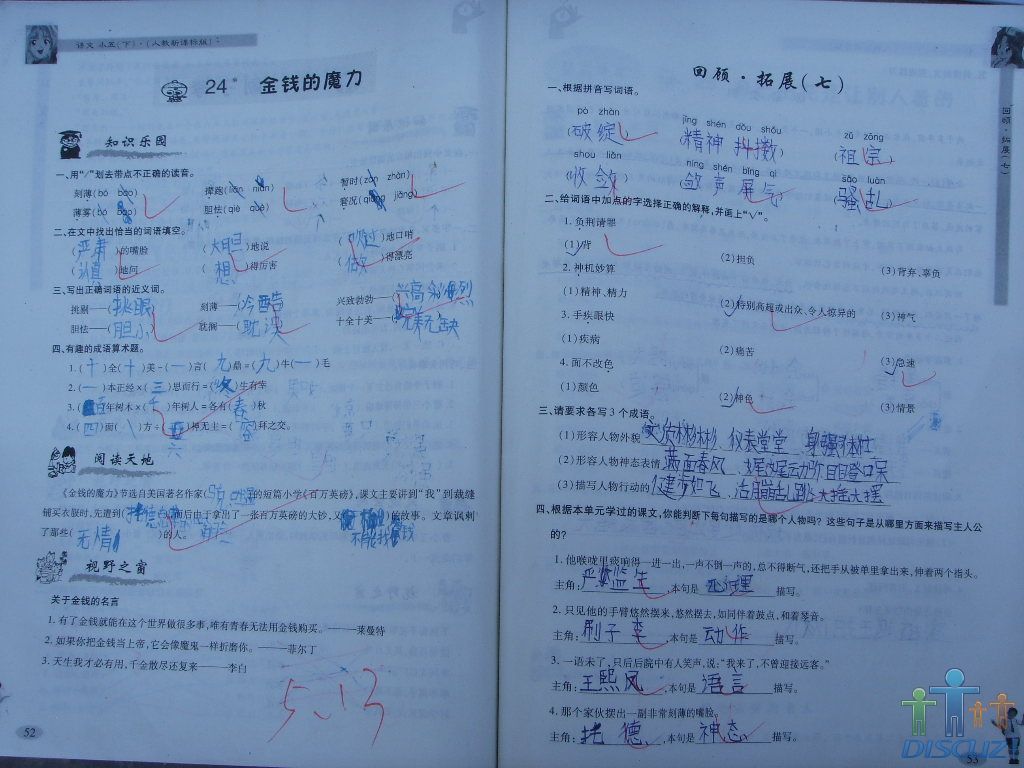 语文 小五(下)·(人教新课标版)
24* 金钱的魔力
知识乐园
一、用“╱”划去带点不正确的读音。
刻薄(bó báo) 撑跑(liǎn niǎn) 暂时(zàn zhàn)
薄雾(bó báo) 胆怯(qiè què) 窘况(qiǎng jiǒng)
二、在文中找出恰当的词语填空。
(严肃)的嘴脸 (大胆)地说 ()地口哨
(认真)地问 (想)得厉害 (做)得漂亮
三、写出正确词语的近义词。
挑剔——(挑眼) 刻薄——(酷) 兴致勃勃——(兴高采烈)
胆怯——(胆小) 耽搁——() 十全十美——(完美无缺)
四、有趣的成语算术题。
1.(十)全(十)美-(一)言(九)鼎=(九)牛(一)毛
2.(一)本正经×(三)思而行=()生有幸
3.(百)年树木×()年树人=各有(春)秋
4.(四)面(八)方÷()神无主=()环之交。
六
阅读天地
《金钱的魔力》节选自美国著名作家()的短篇小说《百万英磅》,课文主要讲到“我”到裁缝
铺买衣服时,先遭到(托德)白,而后由于拿出了一张百万英磅的大钞,又()的故事。文章讽刺
了那些(无情)的人。
视野之窗
关于金钱的名言
1. 有了金钱就能在这个世界做很多事,唯有青春无法用金钱购买。——莱曼特
2. 如果你把金钱当上帝,它会像魔鬼一样折磨你。——菲尔丁
3. 天生我才必有用,千金散尽还复来——李白
5、13
52
回顾·拓展(七)
回顾·拓展(七)
一、根据拼音写词语。
pò zhàn jīng shén dǒu shǒu zǔ zōng
(破绽) (精神抖擞) (祖宗)
shōu liǎn níng shén bǐng qì sāo luàn
(收敛) (声屏气) (骚乱)
二、给词语中加点的字选择正确的解释,并画上“√”。
1. 负荆请罪
(1)背 (2)担负 (3)背弃、辜负
2. 神机妙算
(1)精神、精力 (2)特别高超或出众、令人惊异的 (3)神气
3. 手疾眼快
(1)疾病 (2)痛苦 (3)急速
4. 面不改色
(1)颜色 (2)神色 (3)情景
三、请要求各写3个成语。
(1)形容人物外貌 文质彬彬、仪表堂堂、身强体壮
(2)形容人物神态表情 满面春风、目瞪口呆
(3)描写人物行动的 健步如飞、活蹦乱跳、大摇大摆
四、根据本单元学过的课文,你能判断下每句描写的是哪个人物吗?这些句子是从哪里方面来描写主人公
的?
1. 他喉咙里痰响得一进一出,一声不倒一声的,总不得断气,还把手从被单里拿出来,伸着两个指头。
主角:严监生,本句是心理描写。
2. 只见他的手臂悠然摆来,悠然摆去,如同伴着鼓点,和着琴音。
主角:刷子李,本句是动作描写。
3. 一语未了,只后后院中有人笑声,说:“我来了,不曾迎接远客。”
主角:王熙凤,本句是语言描写。
4. 那个家伙摆出一副非常刻薄的嘴脸。
主角:托德,本句是神态描写。
DISCUZ!
53